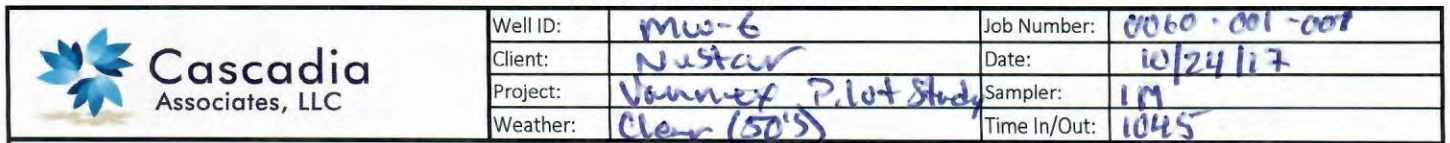 Cascadia
Associates, LLC
Well ID: MW-6 Job Number: 0060-001-001
Client: NuStar Date: 10/24/17
Project: Vannex Pilot Study Sampler: IM
Weather: Clear (50's) Time In/Out: 1045